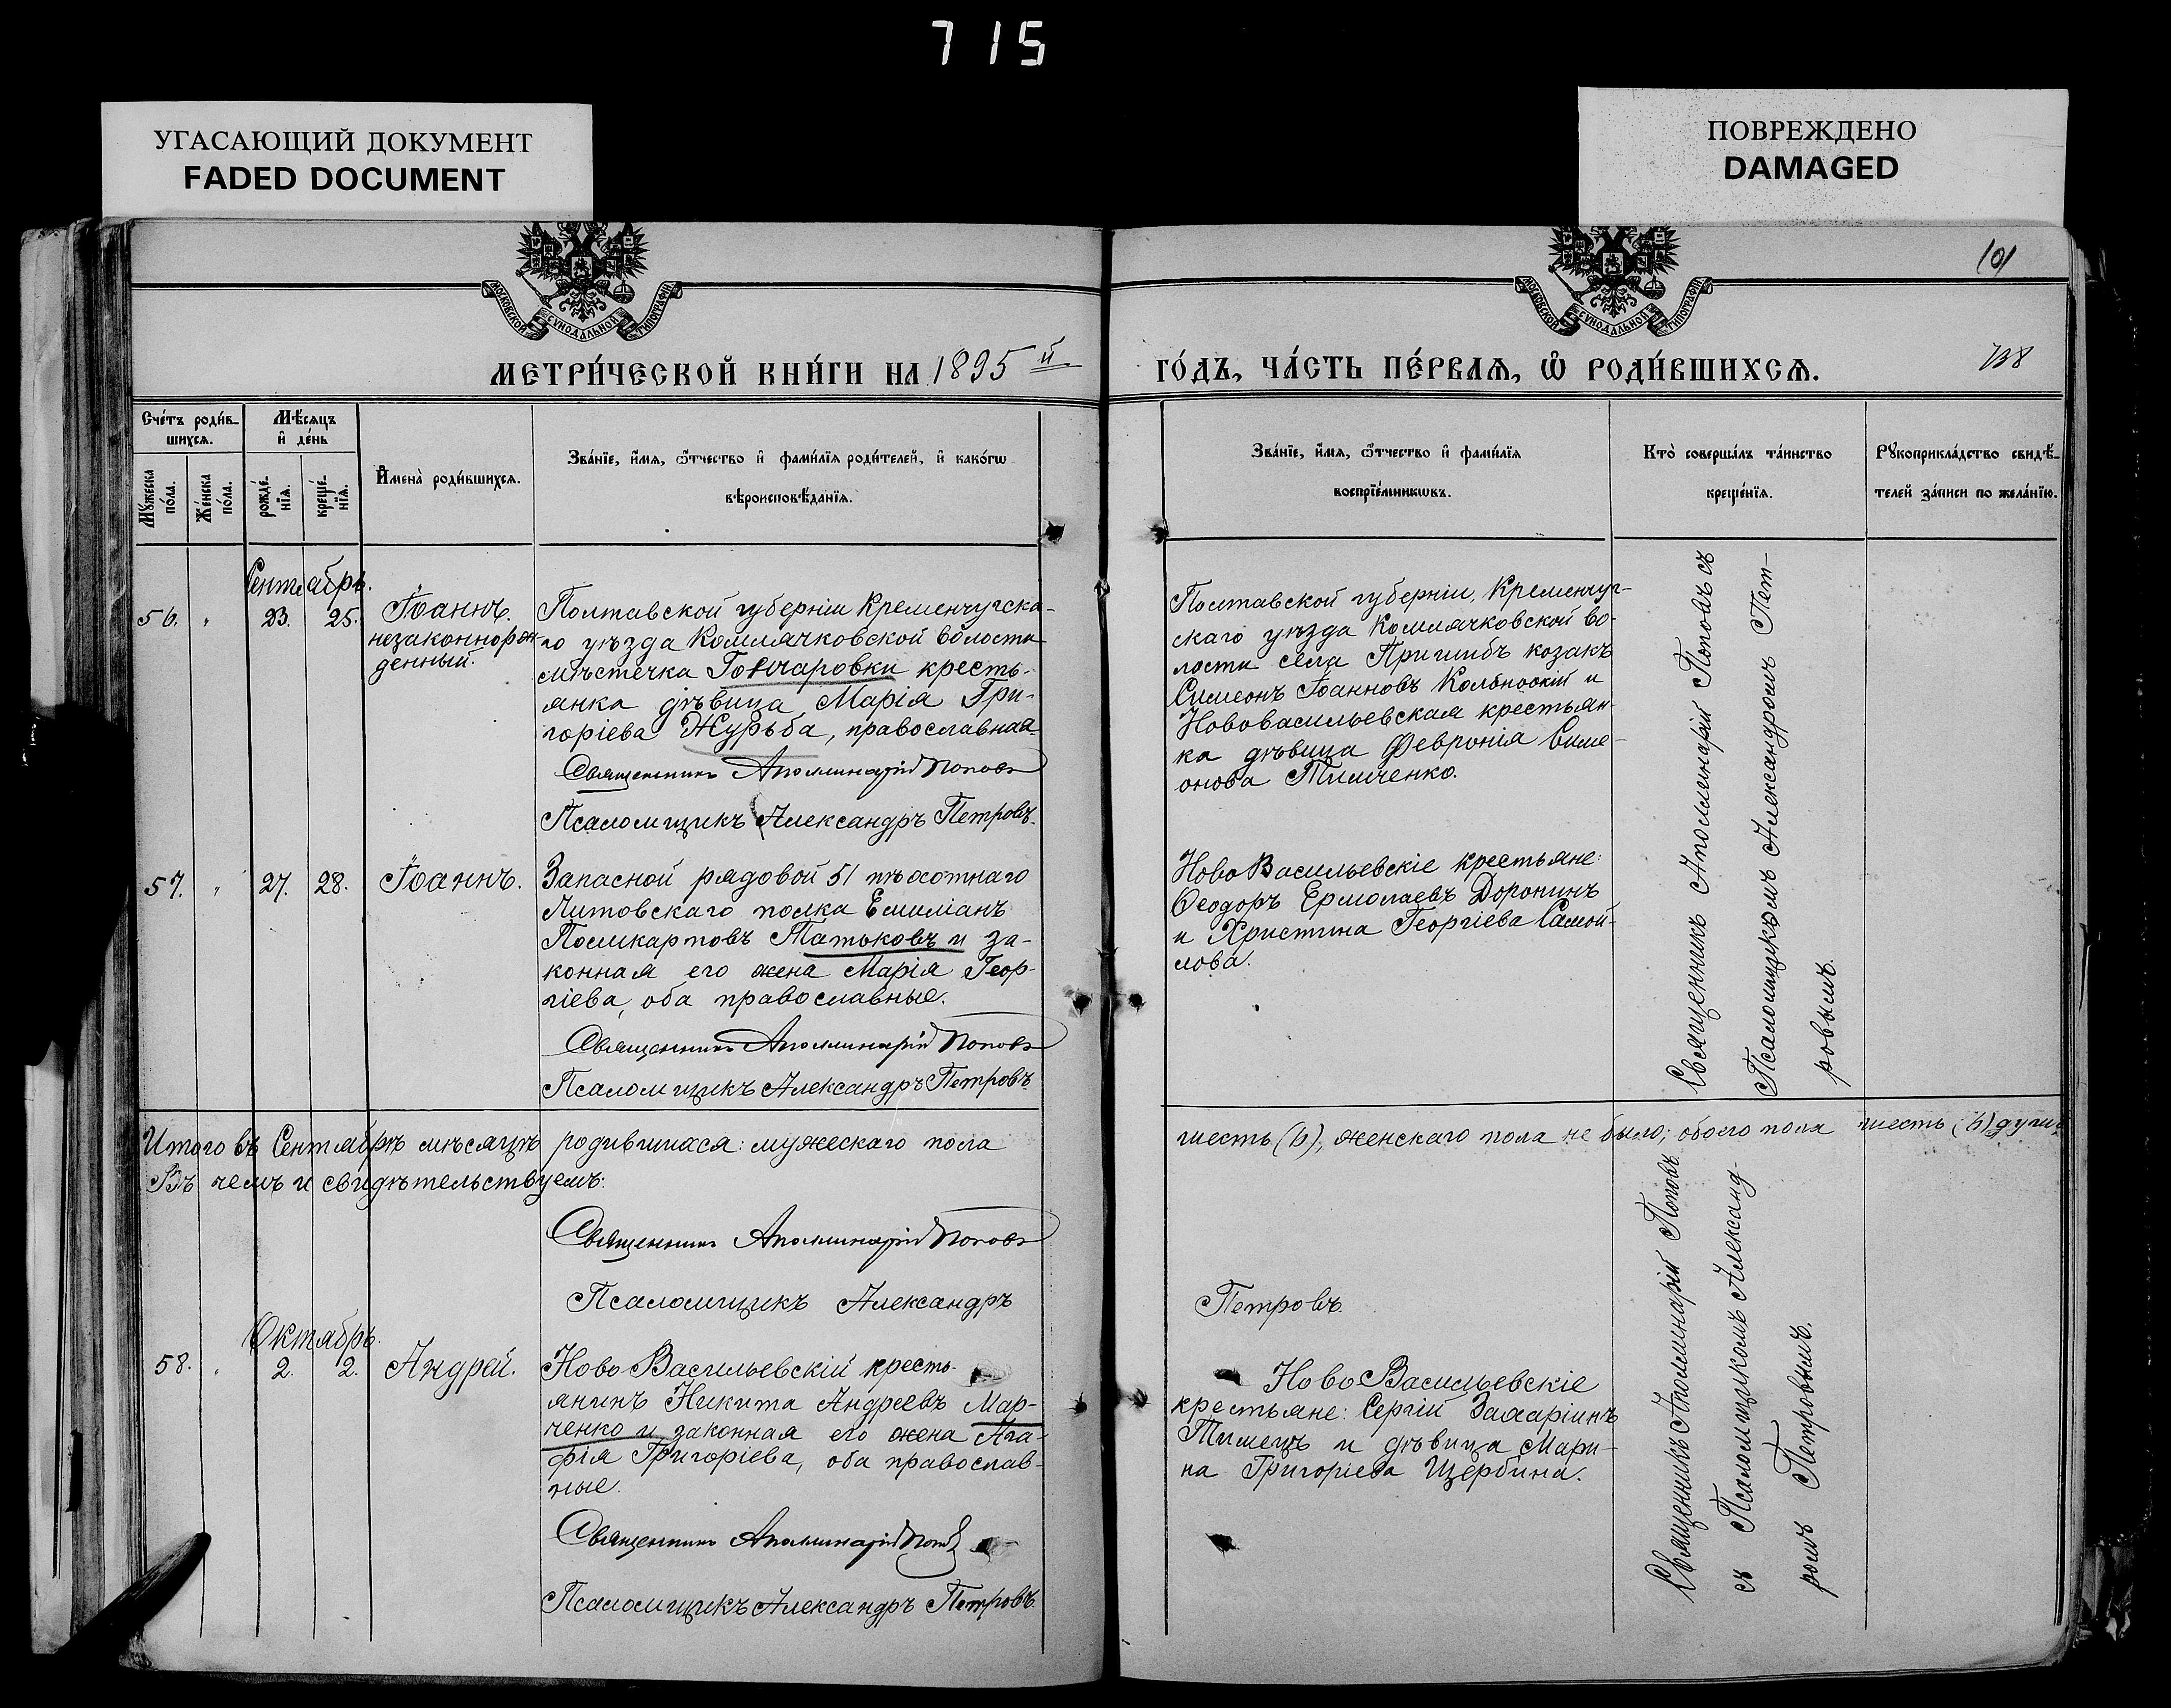 715
УГАСАЮЩИЙ ДОКУМЕНТ
FADED DOCUMENT
ПОВРЕЖДЕНО
DAMAGED
101
МОСКОВСКОЙ СѴНОДАЛЬНОЙ ТИПОГРАФІИ
МОСКОВСКОЙ СѴНОДАЛЬНОЙ ТИПОГРАФІИ
МЕТРИ́ЧЕСКОЙ КНИ́ГИ НА 1895 й
ГО́ДЪ, ЧА́СТЬ ПЕ́РВАѦ, Ѡ РОДИ́ВШИХСѦ.
738
Сче́тъ роди́в-
шихсѧ.
Мѣ́сѧцъ
и҆ де́нь
Мꙋ́жеска
по́ла.
Же́нска
по́ла.
рожде́-
нїѧ.
креще́-
нїѧ.
И҆мена̀ роди́вшихсѧ.
Зва́нїе, и҆́мѧ, ѻ҆́тчество и҆ фами́лїѧ роди́телей, и҆ како́гѡ
вѣроисповѣ́данїѧ.
Зва́нїе, и҆́мѧ, ѻ҆́тчество и҆ фами́лїѧ
воспрїе́мникѡвъ.
Кто̀ соверша́лъ та́инство
креще́нїѧ.
Рꙋкоприкла́дство свидѣ́-
телей за́писи по жела́нїю.
Сентябрь.
56. " 23. 25. Іоаннъ.
незаконнорож
денный.
Полтавской губерніи Кременчугска-
го уѣзда Комлячковской волости
мѣстечка Гончаровки кресть-
янка дѣвица Марія Гри-
горіева Журьба, православная
Священникъ Аполлинарій Поповъ
Псаломщикъ Александръ Петровъ.
Полтавской губерніи, Кременчуг-
скаго уѣзда Комлячковской во-
лости села Пришибъ козакъ
Симеонъ Іоанновъ и
Нововасильевская крестьян-
ка дѣвица Февронія Симе-
онова Тимченко.
Священникъ Аполлинарій Поповъ съ
Псаломщикомъ Александромъ Пет-
ровымъ.
57. " 27. 28. Іоаннъ.
Запасной рядовой 51 пѣхотнаго
Литовскаго полка Емиліанъ
Поликарповъ Татьковъ и за-
конная его жена Марія Геор-
гіева, оба православные.
Священникъ Аполлинарій Поповъ
Псаломщикъ Александръ Петровъ.
НовоВасильевскіе крестьяне:
Ѳеодоръ Ермолаевъ Доронинъ
и Христина Георгіева Самой-
лова.
Итого въ Сентябрѣ мѣсяцѣ родившихся: мужескаго пола
шесть (6), женскаго пола не было; обоего пола шесть (6) душъ
Въ чемъ и свидѣтельствуемъ:
Священникъ Аполлинарій Поповъ
Псаломщикъ Александръ
Петровъ.
Октябрь.
58. " 2. 2. Андрей.
НовоВасильевскій кресть-
янинъ Никита Андреевъ Мар-
ченко и законная его жена Ага-
фія Григоріева, оба православ-
ные.
Священникъ Аполлинарій Поповъ
Псаломщикъ Александръ Петровъ.
НовоВасильевскіе
крестьяне: Сергій Захаріинъ
Тимецъ и дѣвица Мари-
на Григоріева Щербина.
Священникъ Аполлинарій Поповъ
съ Псаломщикомъ Александ-
ромъ Петровымъ.